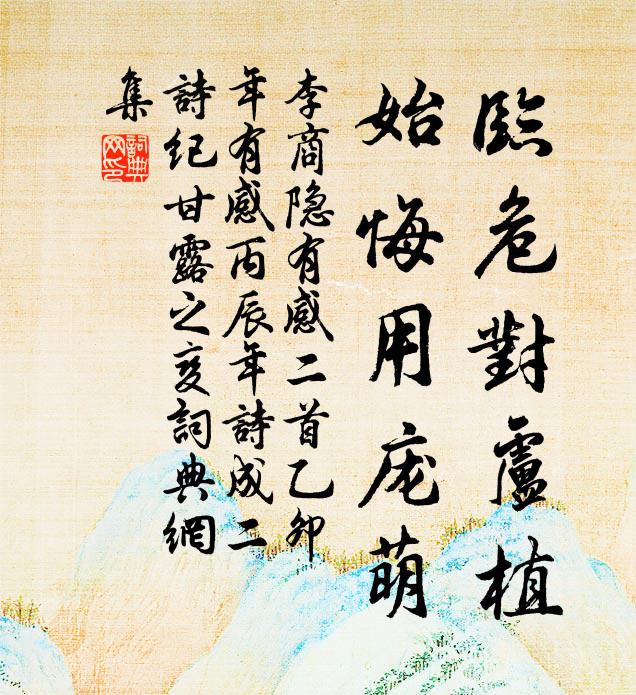 臨危對盧植
始悔用庞萌
李商隐有感二首乙卯
年有感丙辰年詩成二
詩纪甘露之变詞典網
集
詞典
网印